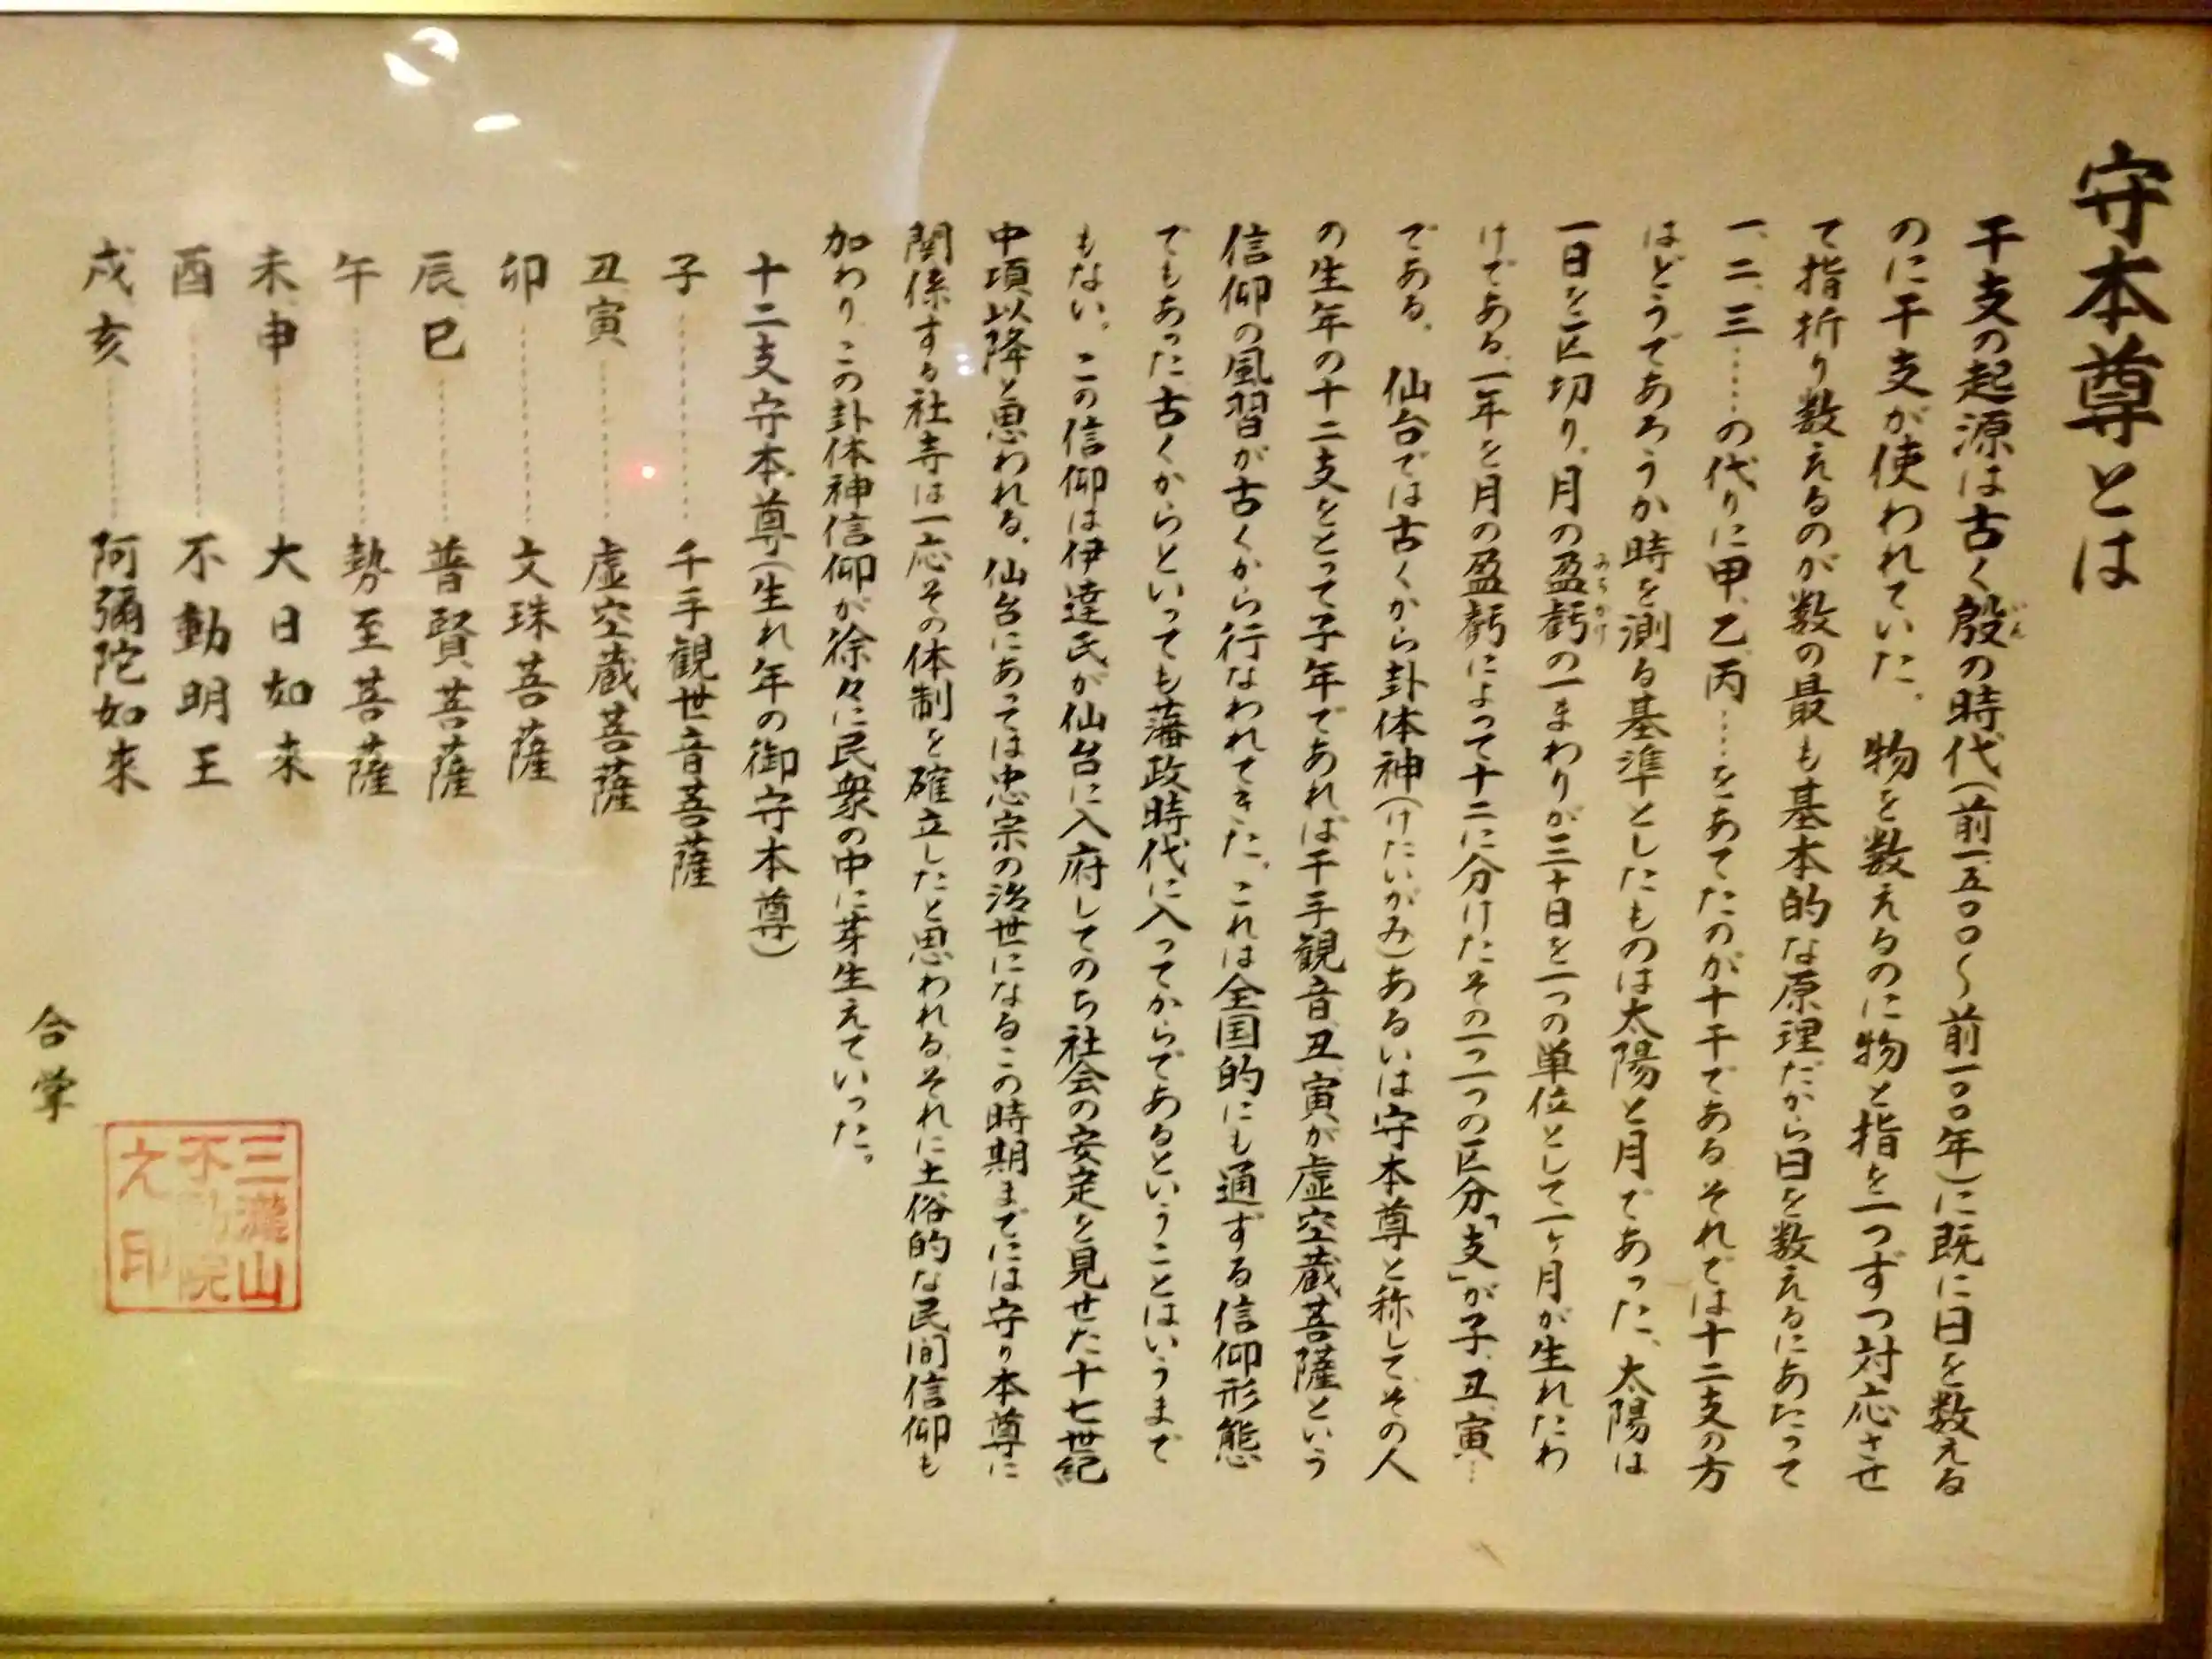 守本尊とは
干支の起源は古く殷の時代(前一五〇〇〜前一〇〇年)に既に日を数える
いん
のに干支が使われていた。物を数えるのに物と指を一つずつ対応させ
て指折り数えるのが数の最も基本的な原理だから日を数えるにあたって
一、二、三……の代りに甲、乙、丙……をあてたのが十干である。それでは十二支の方
はどうであろうか時を測る基準としたものは太陽と月であった、太陽は
一日を区切り、月の盈虧の一まわりが三十日を一つの単位として一ヶ月が生れたわ
みちかけ
けである、一年を月の盈虧によって十二に分けたその一つ一つの区分「支」が子、丑、寅…
である。仙台では古くから卦体神(けたいがみ)あるいは守本尊と称してその人
の生年の十二支をとって子年であれば千手観音、丑、寅が虚空蔵菩薩という
信仰の風習が古くから行なわれてきた。これは全国的にも通ずる信仰形態
でもあった古くからといっても藩政時代に入ってからであるということはいうまで
もない。この信仰は伊達氏が仙台に入府してのち社会の安定を見せた十七世紀
中項以降と思われる。仙台にあっては忠宗の治世になるこの時期までには守り本尊に
関係する社寺は一応その体制を確立したと思われる、それに土俗的な民間信仰も
加わり、この卦体神信仰が徐々に民衆の中に芽生えていった。
十二支守本尊(生れ年の御守本尊)
子………千手観世音菩薩
丑寅………虚空蔵菩薩
卯………文珠菩薩
辰巳………普賢菩薩
午………勢至菩薩
未申………大日如来
酉………不動明王
戌亥………阿彌陀如来
合掌
三瀧山
不動院
之印